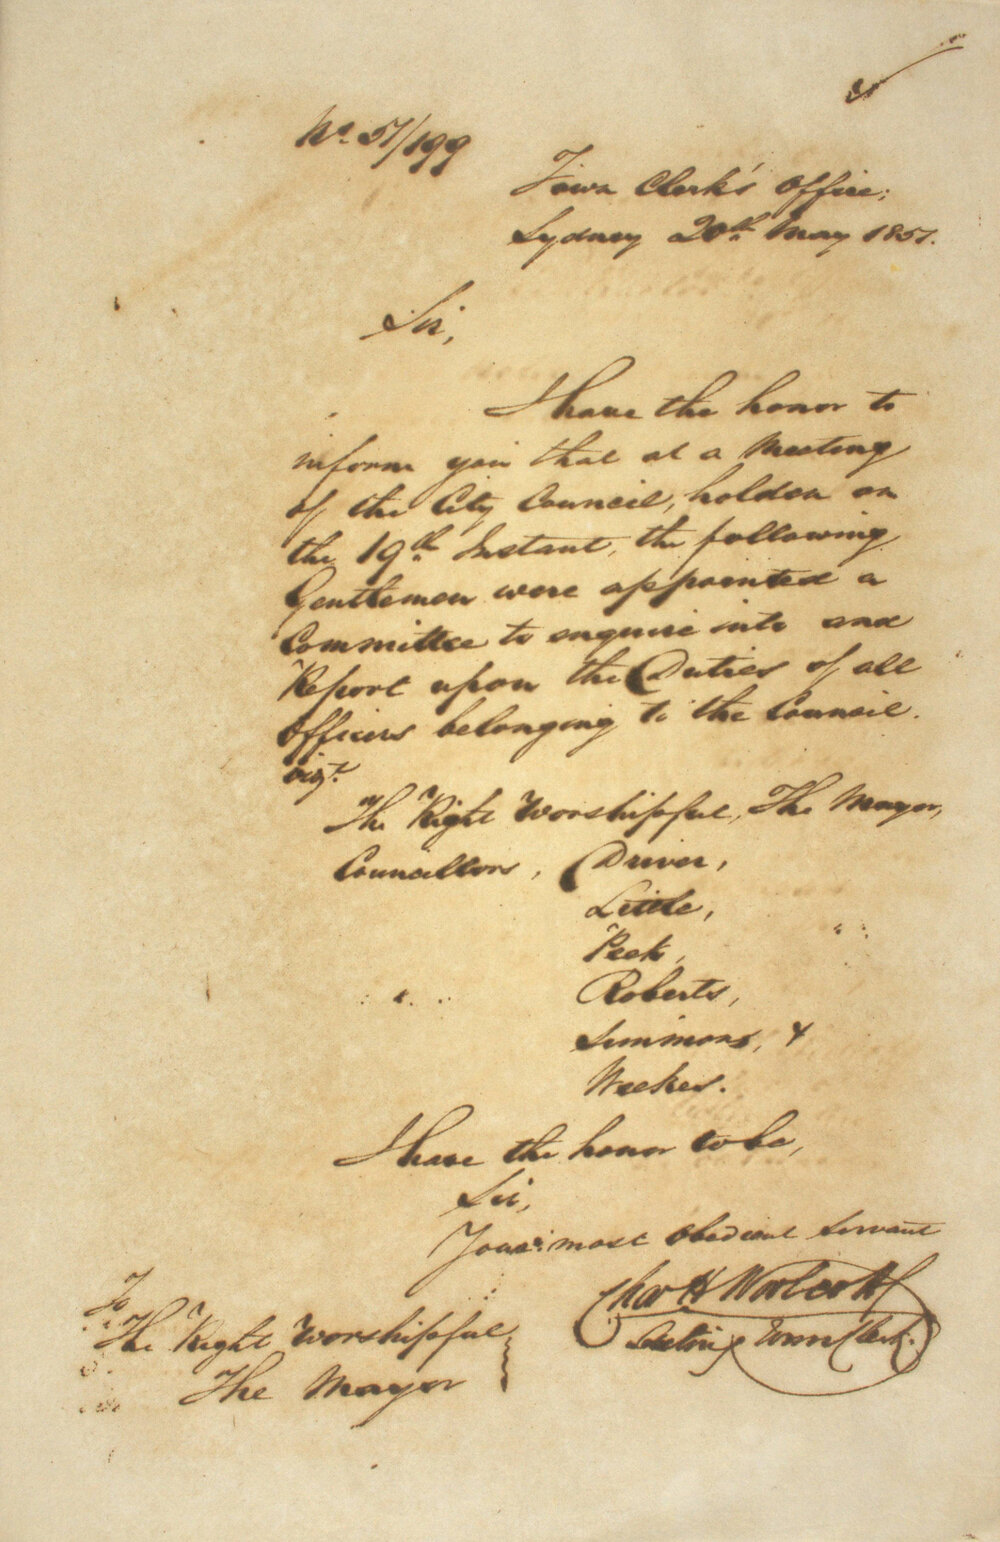 No. 57/199
Town Clerk's Office;
Sydney 20th May 1857.
Sir,
I have the honor to
inform you that at a Meeting
of the City Council, holden on
the 19th Instant, the following
Gentlemen were appointed a
Committee to enquire into and
Report upon the Duties of all
Officers belonging to the Council.
vizt.
The Right Worshipful, The Mayor,
Councillors, Driver,
Little,
Peek,
Roberts,
Simmons, &
Weekes.
I have the honor to be,
Sir,
Your most obedient servant
Chas H Woolcott
Acting Town Clerk.
To
The Right Worshipful
The Mayor